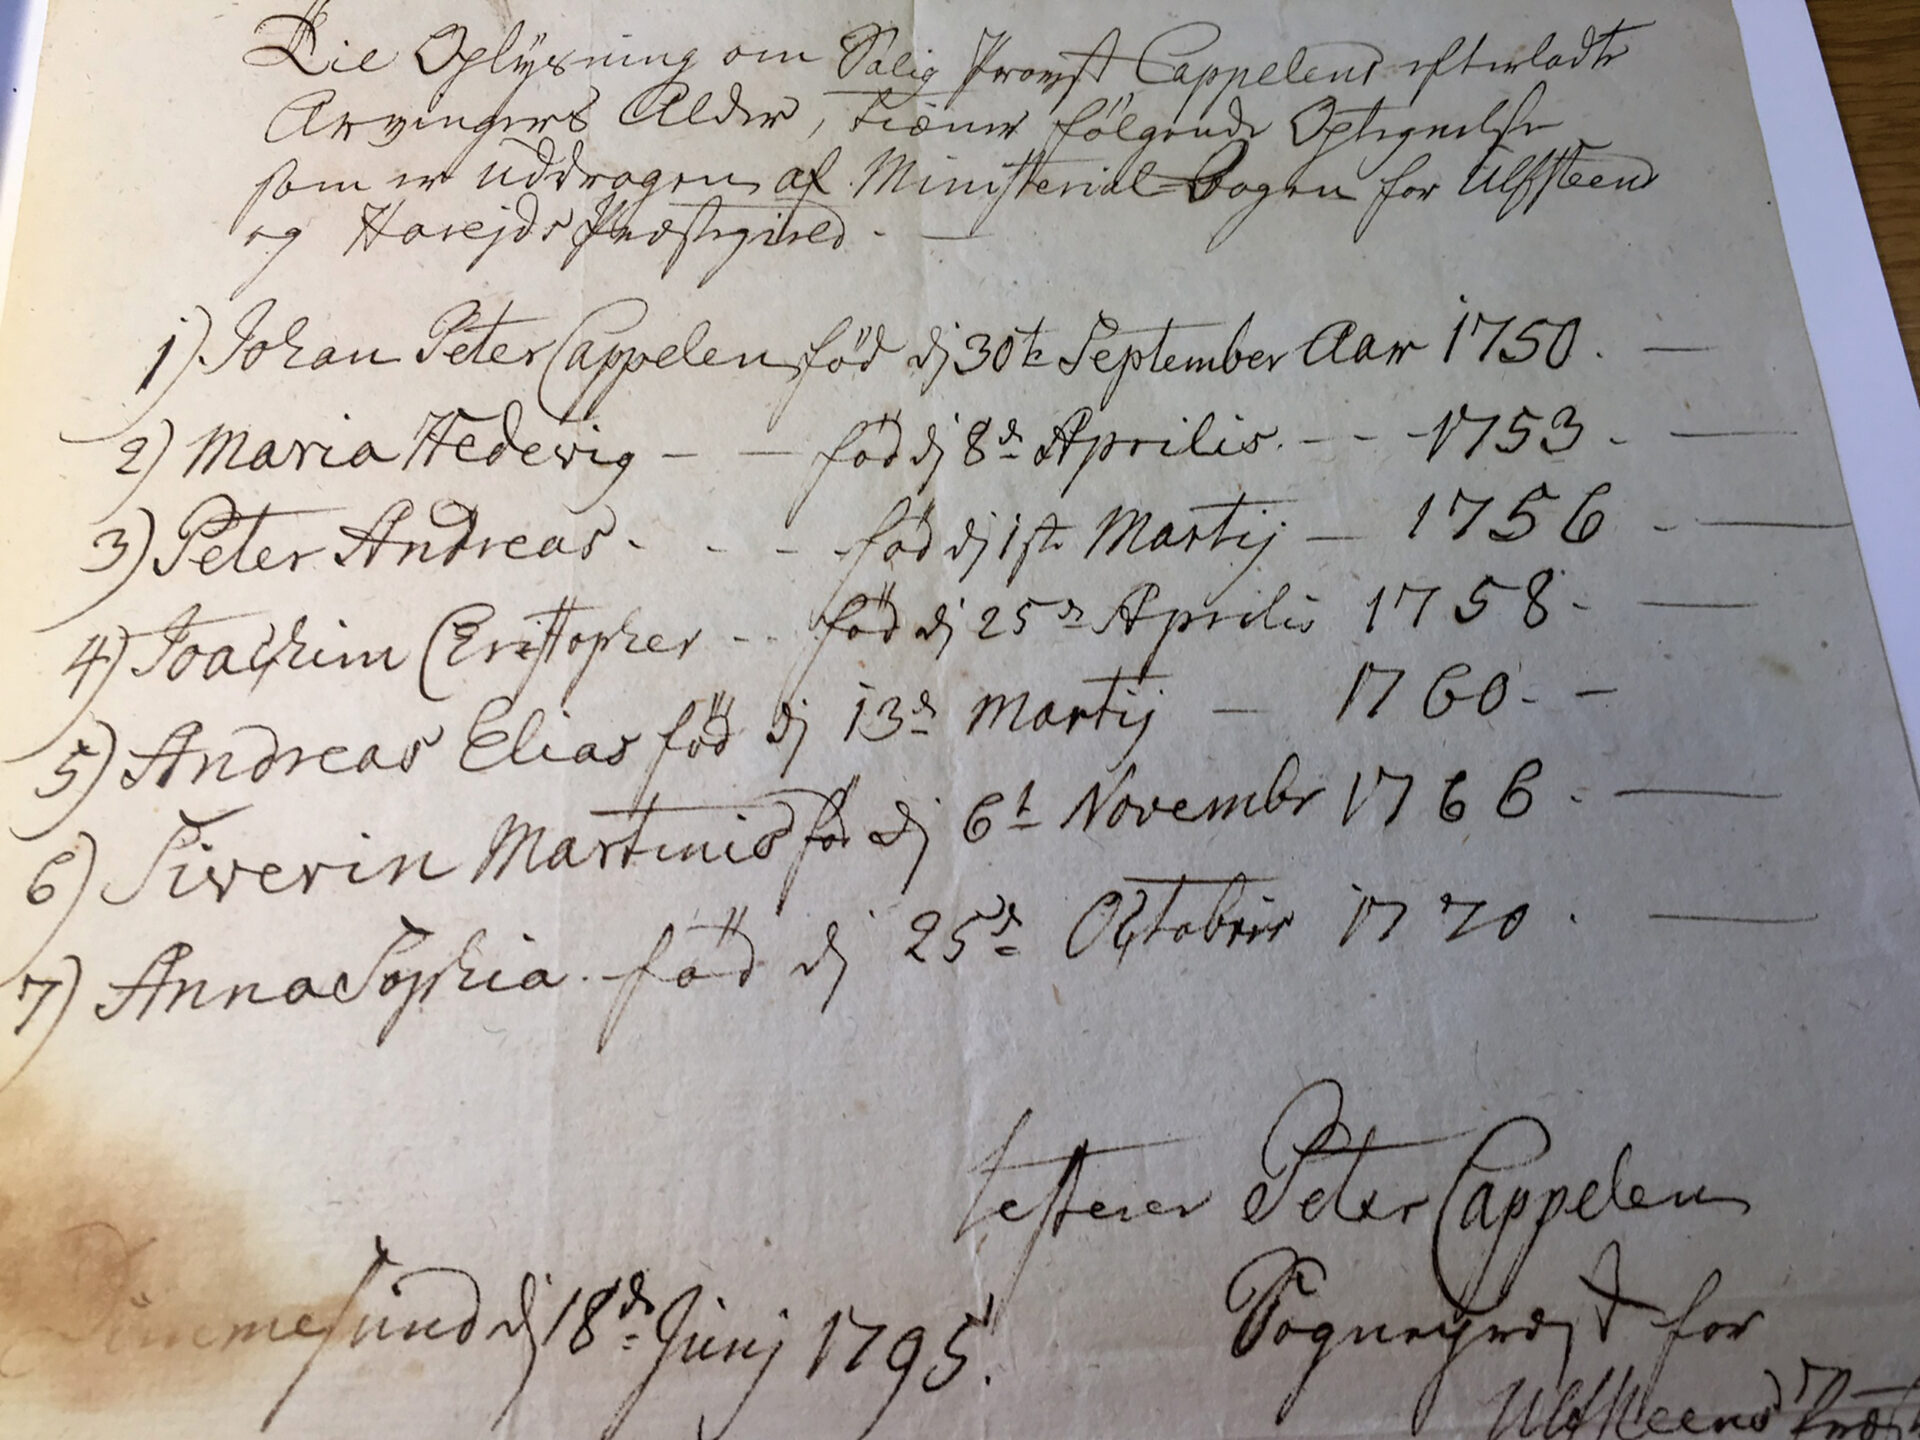 Til Oplysning om Salig Provst Cappelens efterladte
Arvingers Alder, tiæner følgende Optegnelse
som er uddragen af Ministerial-Bogen for Ulfsteens
og Harejds Præstegield. —
1) Johan Peter Cappelen, fød dj 30te September Aar 1750. —
2) Maria Hedewig — — fød dj 8de Aprilis. - - - 1753. —
3) Peter Andreas. - - - fød dj 1ste Martij — 1756 - —
4) Joachim Christopher - - fød dj 25de Aprilis 1758. —
5) Andreas Elias fød dj 13de Martij — 1760. - —
6) Siverin Martinus fød dj 6te Novembr 1766. —
7) Anna Sophia. fød dj 25de Octobris 1770. —
testerer Peter Cappelen
sund dj 18de Junj 1795.
Sognepræst for
Ulfsteens